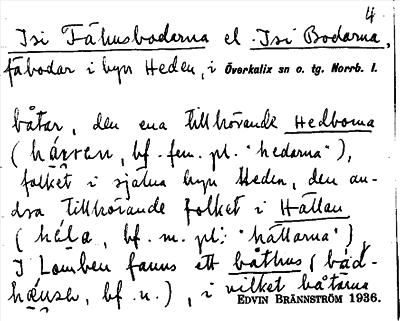 4
Isi Fähusbodarna el. Isi Bodarna,
fäbodar i byn Heden, i Överkalix sn o. tg. Norrb. l.
båtar, den ena tillhörande Hedborna
(            , bf. fem. pl. "hedarna"),
folket i själva byn Heden, den an-
dra tillhörande folket i Hällan
(            , bf. m. pl: "hällarna")
I Lomben fanns ett båthus (båd-
            , bf. n.), i vilket båtarna
EDVIN BRÄNNSTRÖM 1936.